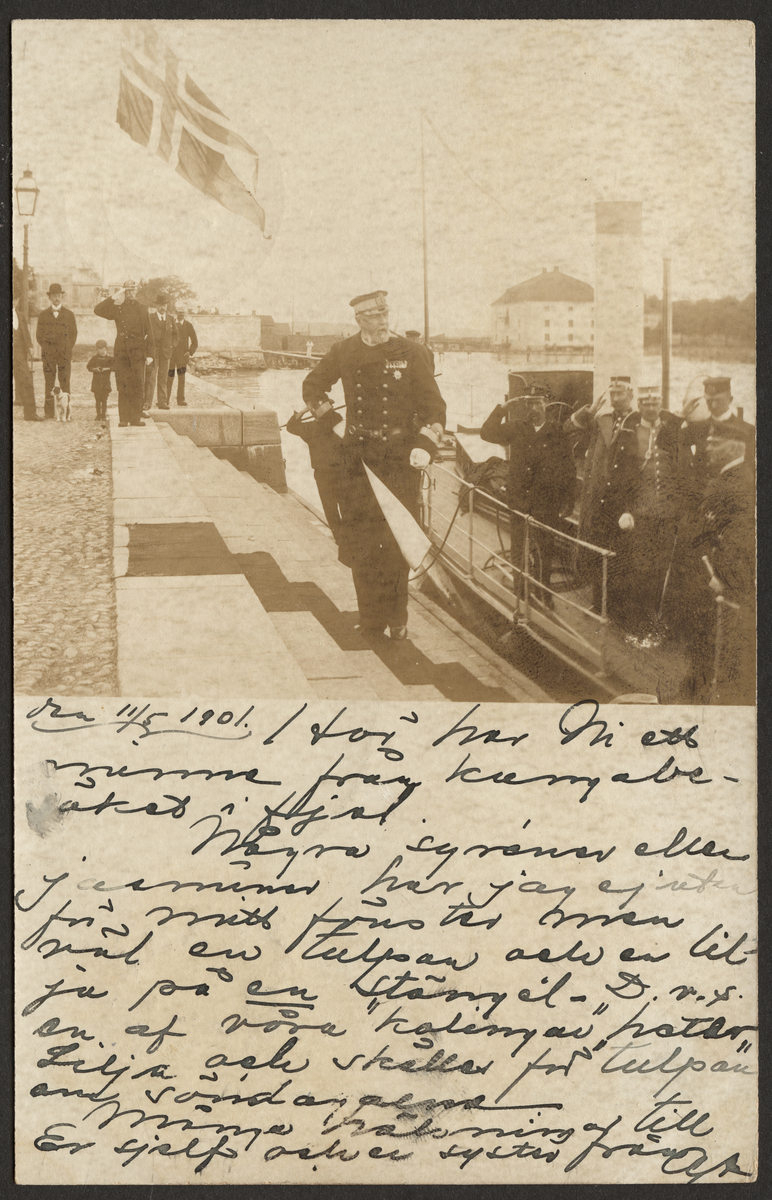 den 11/5 1901. / Här har Ni ett
minne från kungabe-
söket i fjol.
Några syréner eller
jasminer har jag ej utan
för mitt fönster men
väl en tulpan och en lil-
ja på en stängel - D.v.s.
en af våra "kolingar" heter
Lilja och skäller för "tulpan"
om söndagarne
Många hälsningar till
Er sjelf och er syster från